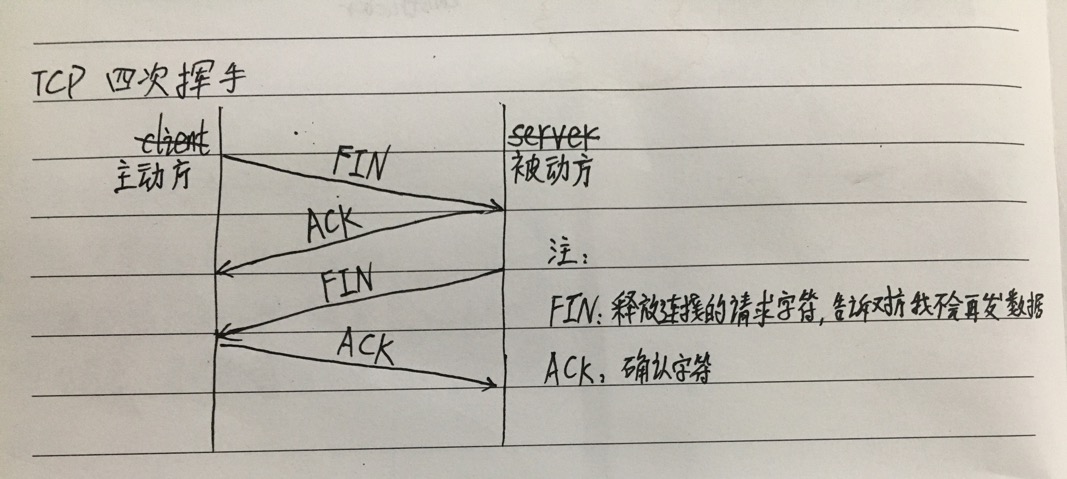 TCP 四次挥手
client
server
主动方
被动方
FIN
ACK
FIN
ACK
注:
FIN: 释放连接的请求字符, 告诉对方我不会再发数据
ACK: 确认字符